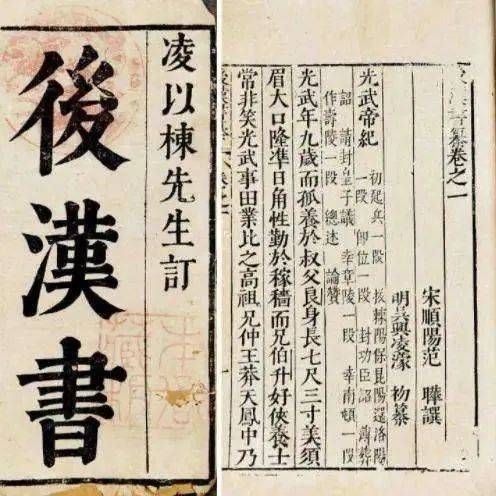 凌以棟先生訂
後漢書
後漢書纂卷之一
宋順陽范 曄譔
明吳興凌濛 初纂
光武帝紀 初起兵一段 拔棘陽保昆陽還洛陽
一段 即位一段 封功臣詔 薄葬
詔 請封皇子議 幸章陵一段 幸南頓一段
作壽陵一段 總述 論贊
光武年九歲而孤養於叔父良身長七尺三寸美須
眉大口隆準日角性勤於稼穡而兄伯升好俠養士
常非笑光武事田業比之高祖兄仲王莽天鳳中乃